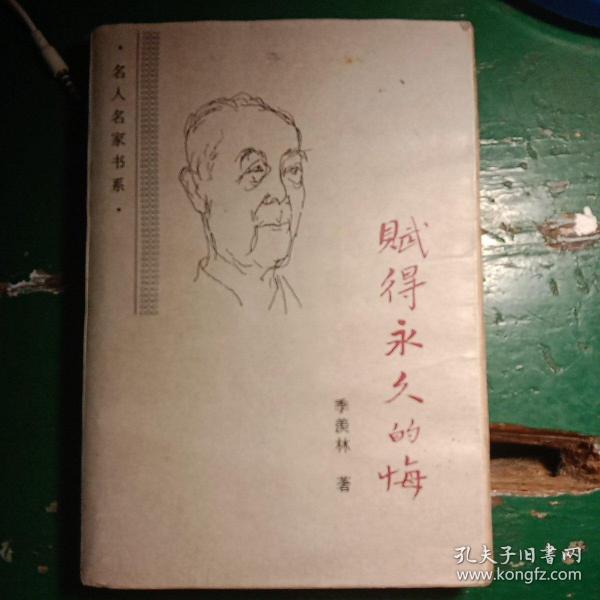 ·名人名家书系·
賦得永久的悔
季羡林 著
孔夫子旧书网
www.kongfz.com